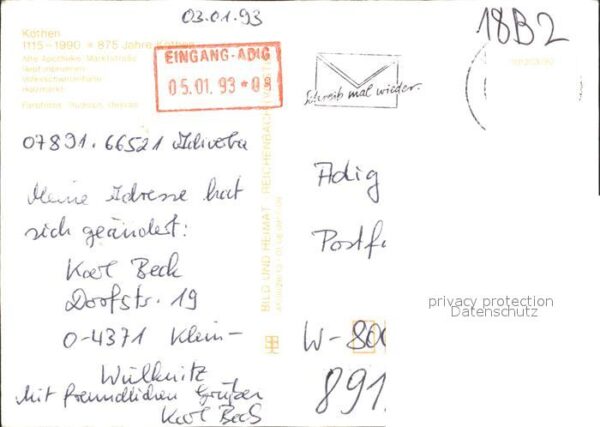 03.01.93
18B2
Köthen
1115-1990 * 875 Jahre Köthen
Alte Apotheke, Marktstraße
Holzmarkt
EINGANG-ADIG
05.01.93*08
Schreib mal wieder.
07891.66521
Meine Adresse hat
sich geändert:
Karl Beck
Dorfstr. 19
0-4371 Klein-
Wülknitz
Mit freundlichen Grüßen
Karl Beck
BILD UND HEIMAT REICHENBACH
Adig
Postfa
W-800
891
privacy protection
Datenschutz